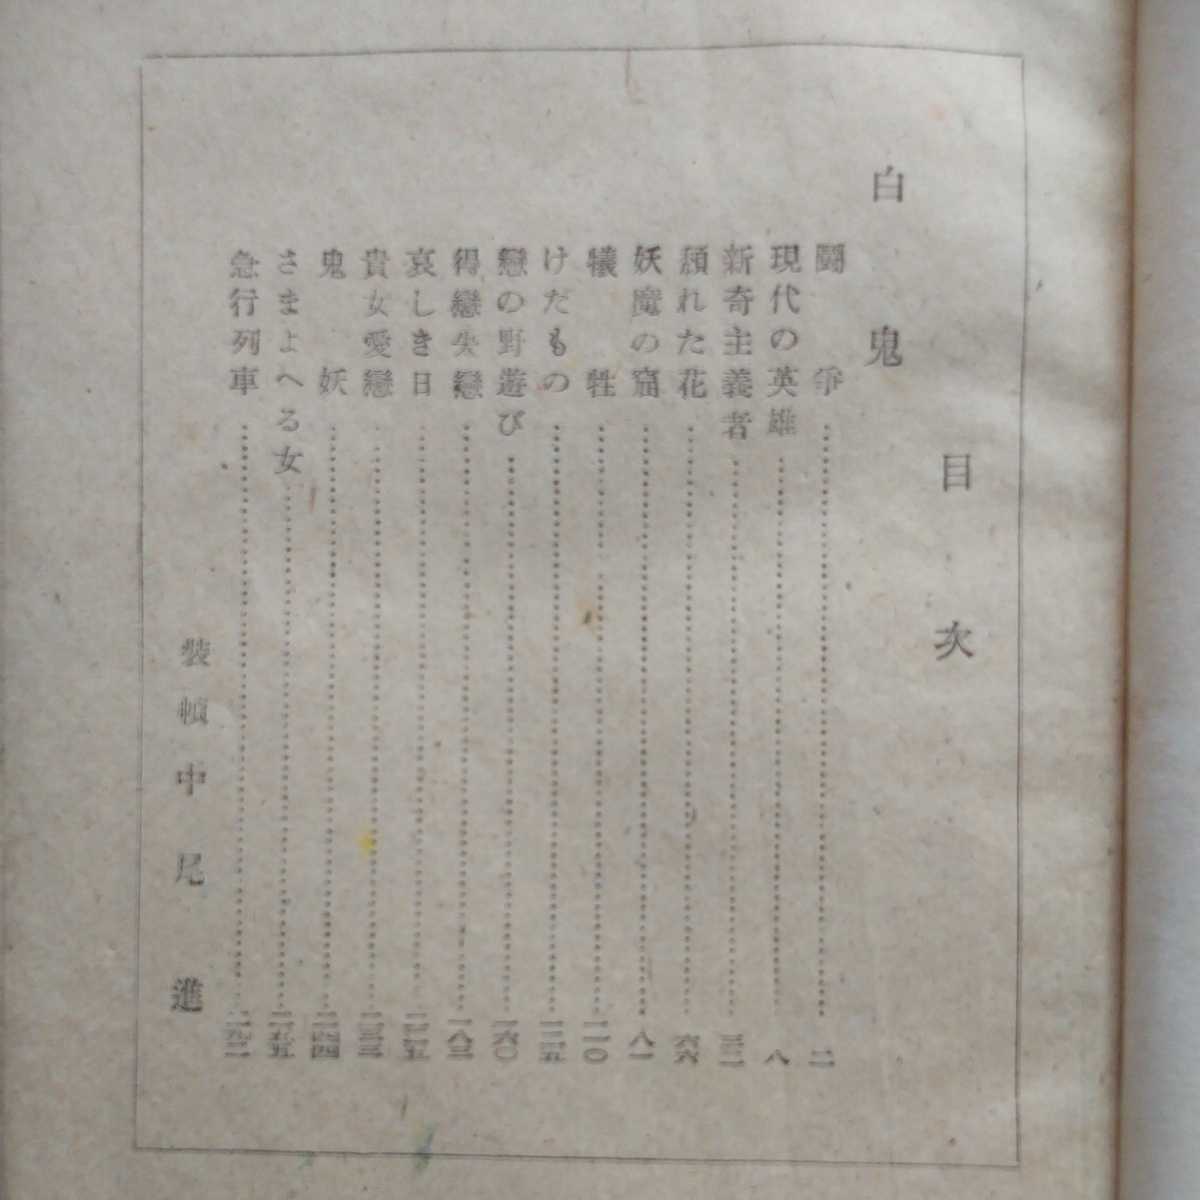 白鬼 目次
闘争……二
現代の英雄……八
新奇主義者……三一
頽れた花……六六
妖魔の窟……八一
犠牲……一一〇
けだもの……一三五
戀の野遊び……一六〇
得戀失戀……一八三
哀しき日……二一五
貴女愛戀……二三三
鬼妖……二四四
さまよへる女……二六五
急行列車……二九二
裝幀 中尾進